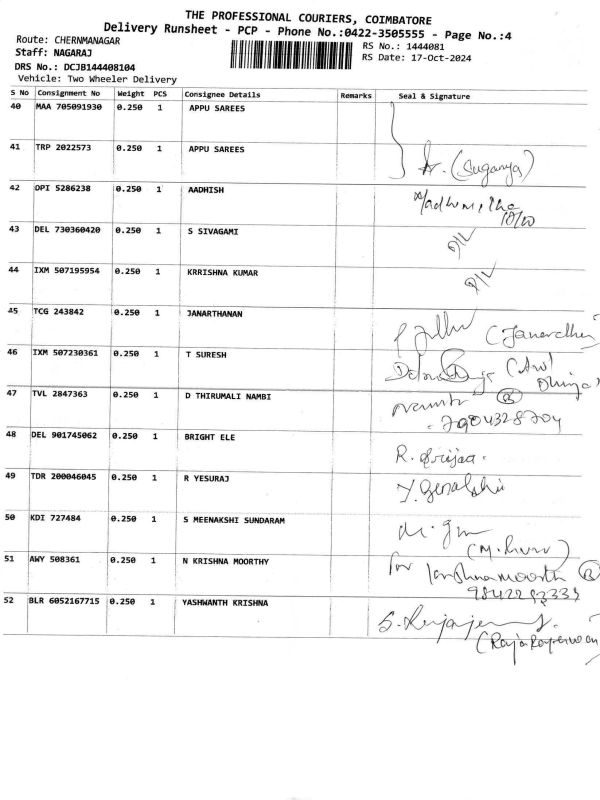 THE PROFESSIONAL COURIERS, COIMBATORE
Delivery Runsheet - PCP - Phone No.:0422-3505555 - Page No.:4
Route: CHERNMANAGAR
RS No.: 1444081
Staff: NAGARAJ
RS Date: 17-Oct-2024
DRS No.: DCJB144408104
Vehicle: Two Wheeler Delivery
S No Consignment No Weight PCS Consignee Details Remarks Seal & Signature
40 MAA 705091930 0.250 1 APPU SAREES
41 TRP 2022573 0.250 1 APPU SAREES
(Suganya)
42 DPI 5286238 0.250 1 AADHISH
43 DEL 730360420 0.250 1 S SIVAGAMI D/L
44 IXM 507195954 0.250 1 KRRISHNA KUMAR D/L
45 TCG 243842 0.250 1 JANARTHANAN
46 IXM 507230361 0.250 1 T SURESH
47 TVL 2847363 0.250 1 D THIRUMALI NAMBI
7904328704
48 DEL 901745062 0.250 1 BRIGHT ELE R.
49 TDR 200046045 0.250 1 R YESURAJ Y.
50 KDI 727484 0.250 1 S MEENAKSHI SUNDARAM
51 AWY 508361 0.250 1 N KRISHNA MOORTHY for
52 BLR 6052167715 0.250 1 YASHWANTH KRISHNA S.